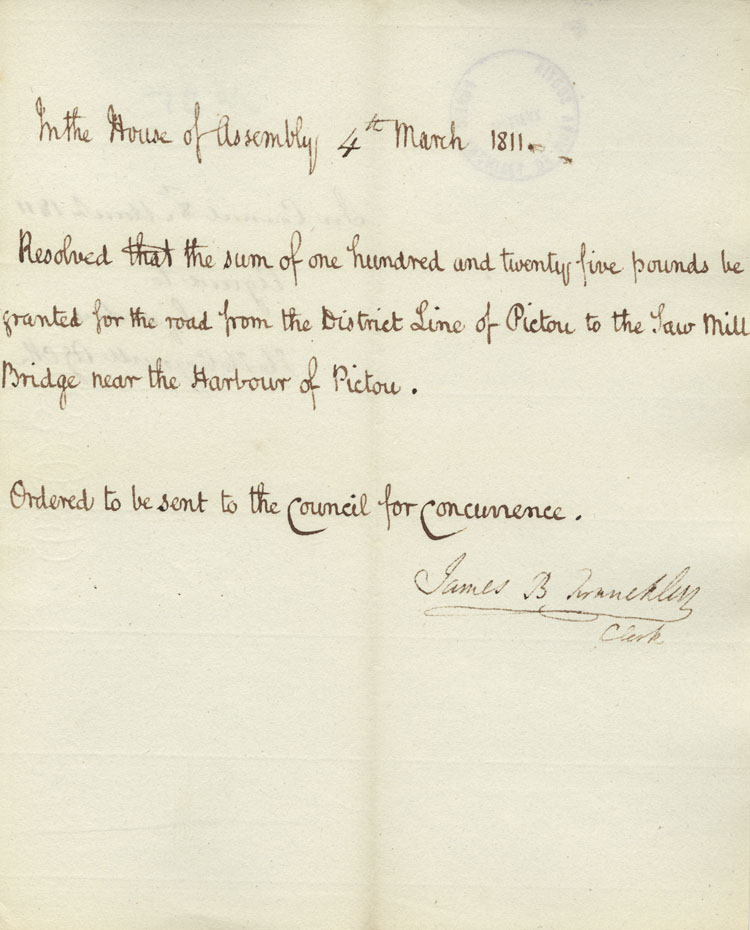 In the House of Assembly 4th March 1811.
Resolved that the sum of one hundred and twenty five pounds be
granted for the road from the District Line of Pictou to the Saw Mill
Bridge near the Harbour of Pictou.
Ordered to be sent to the Council for Concurrence.
James B. Franckley
Clerk